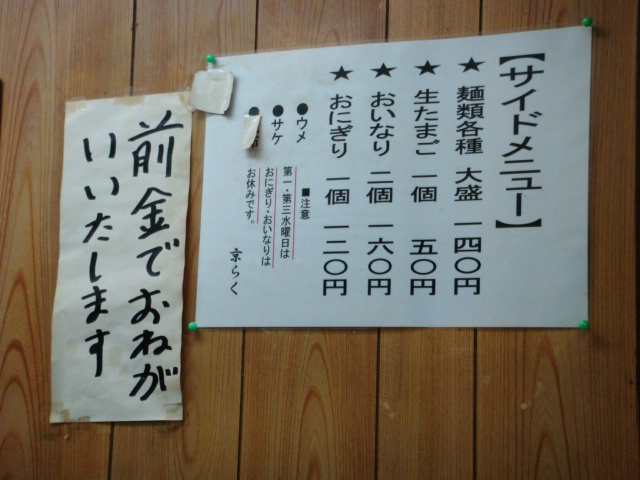 【サイドメニュー】
★ 麺類各種 大盛 一四〇円
★ 生たまご 一個 五〇円
★ おいなり 二個 一六〇円
★ おにぎり 一個 一二〇円
●ウメ
●サケ
■注意
第一・第三水曜日は
おにぎり・おいなりは
お休みです。
京らく
前金でおねが
いいたします